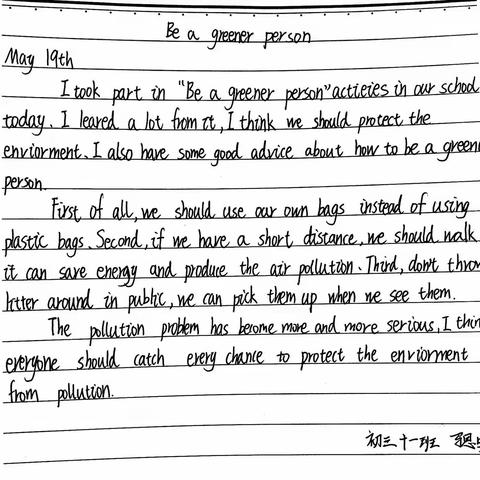 Be a greener person
May 19th
I took part in "Be a greener person" actieies in our school
today. I leared a lot from it, I think we should protect the
enviorment. I also have some good advice about how to be a green
person.
First of all, we should use our own bags instead of using
plastic bags. Second, if we have a short distance, we should walk
it can save energy and produce the air pollution. Third, don't throw
litter around in public, we can pick them up when we see them.
The pollution problem has become more and more serious, I thin
everyone should catch every chance to protect the enviorment
from pollution.
初三十一班